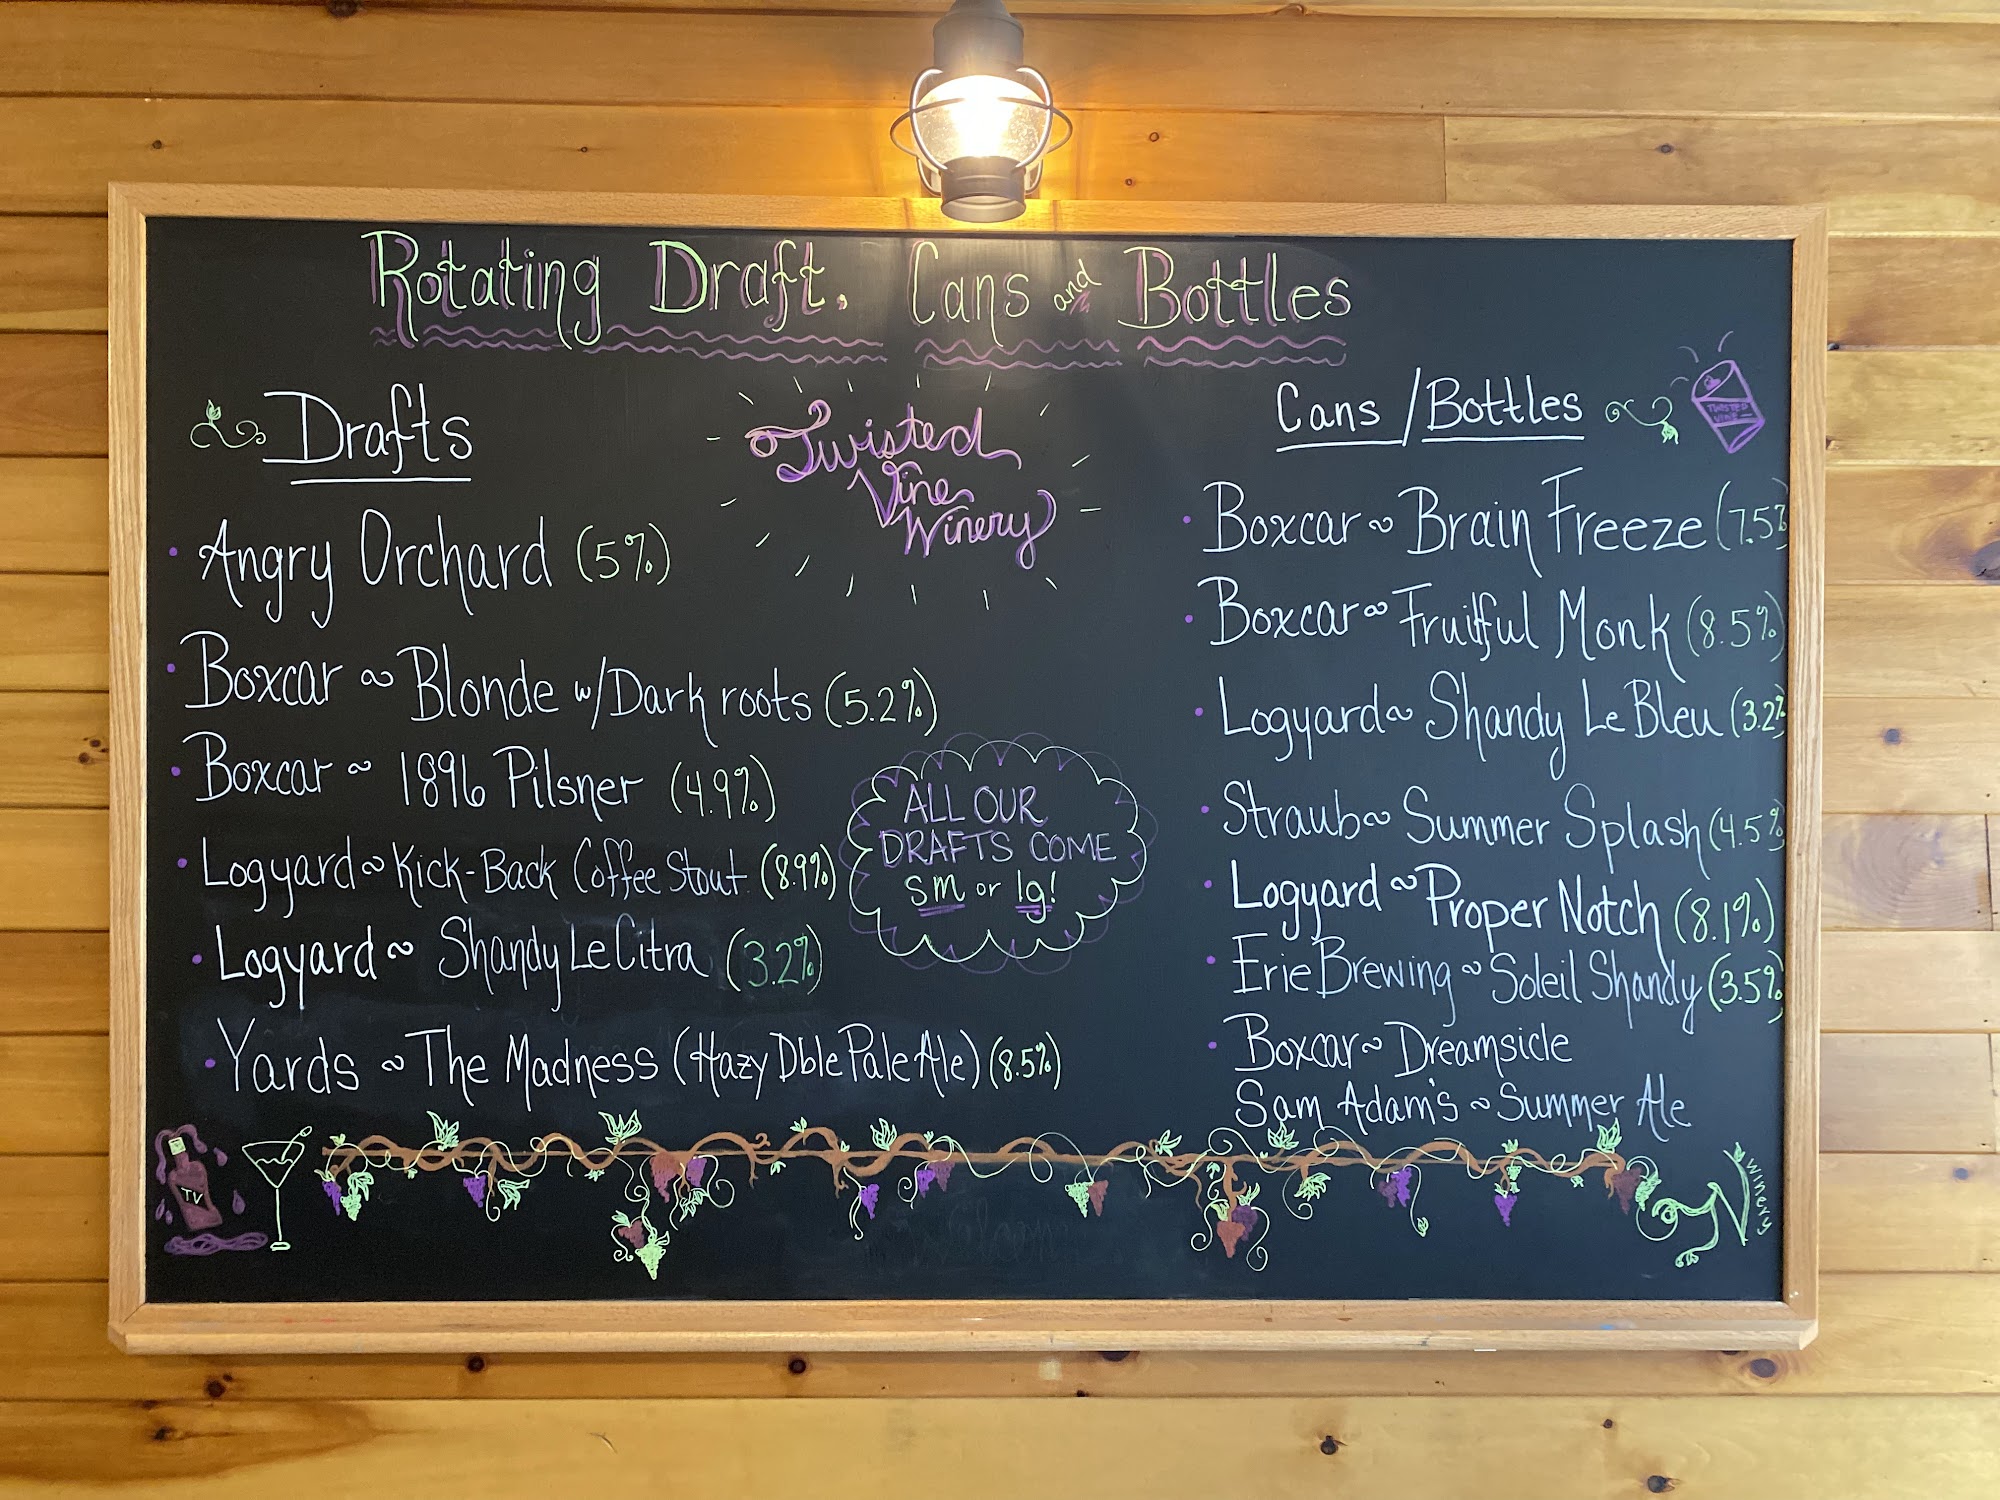 Rotating Draft, Cans and Bottles
Drafts
Angry Orchard (5%)
Boxcar ~ Blonde w/Dark roots (5.2%)
Boxcar ~ 1896 Pilsner (4.9%)
Logyard ~ Kick-Back Coffee Stout (8.9%)
Logyard ~ Shandy Le Citra (3.2%)
Yards ~ The Madness (Hazy Dble Pale Ale) (8.5%)
Twisted
Vine
Winery
ALL OUR
DRAFTS COME
sm or lg!
Cans/Bottles
TWISTED
VINE
Boxcar ~ Brain Freeze (7.5%
Boxcar ~ Fruitful Monk (8.5%)
Logyard ~ Shandy Le Bleu (3.2%
Straub ~ Summer Splash (4.5%
Logyard ~ Proper Notch (8.1%)
Erie Brewing ~ Soleil Shandy (3.5%
Boxcar ~ Dreamsicle
Sam Adam's ~ Summer Ale
TV
Winery